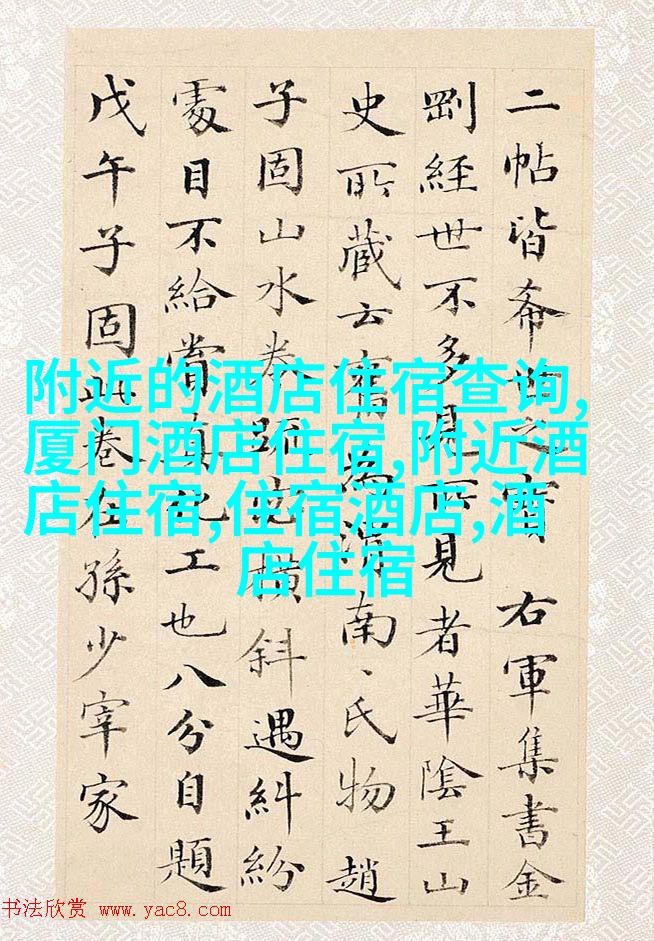 二帖皆希世之寶 右軍集書金
剛經世不多見所見者華陰王山
史所藏云舊為渭南、氏物 趙
子固山水卷疏橫斜遇糾紛
處目不給賞真化工也八分自題
戊午子固此卷在孫少宰家
附近的酒店住宿查询,
厦门酒店住宿,附近酒
店住宿,住宿酒店,酒
店住宿
书法欣赏 www.yac8.com